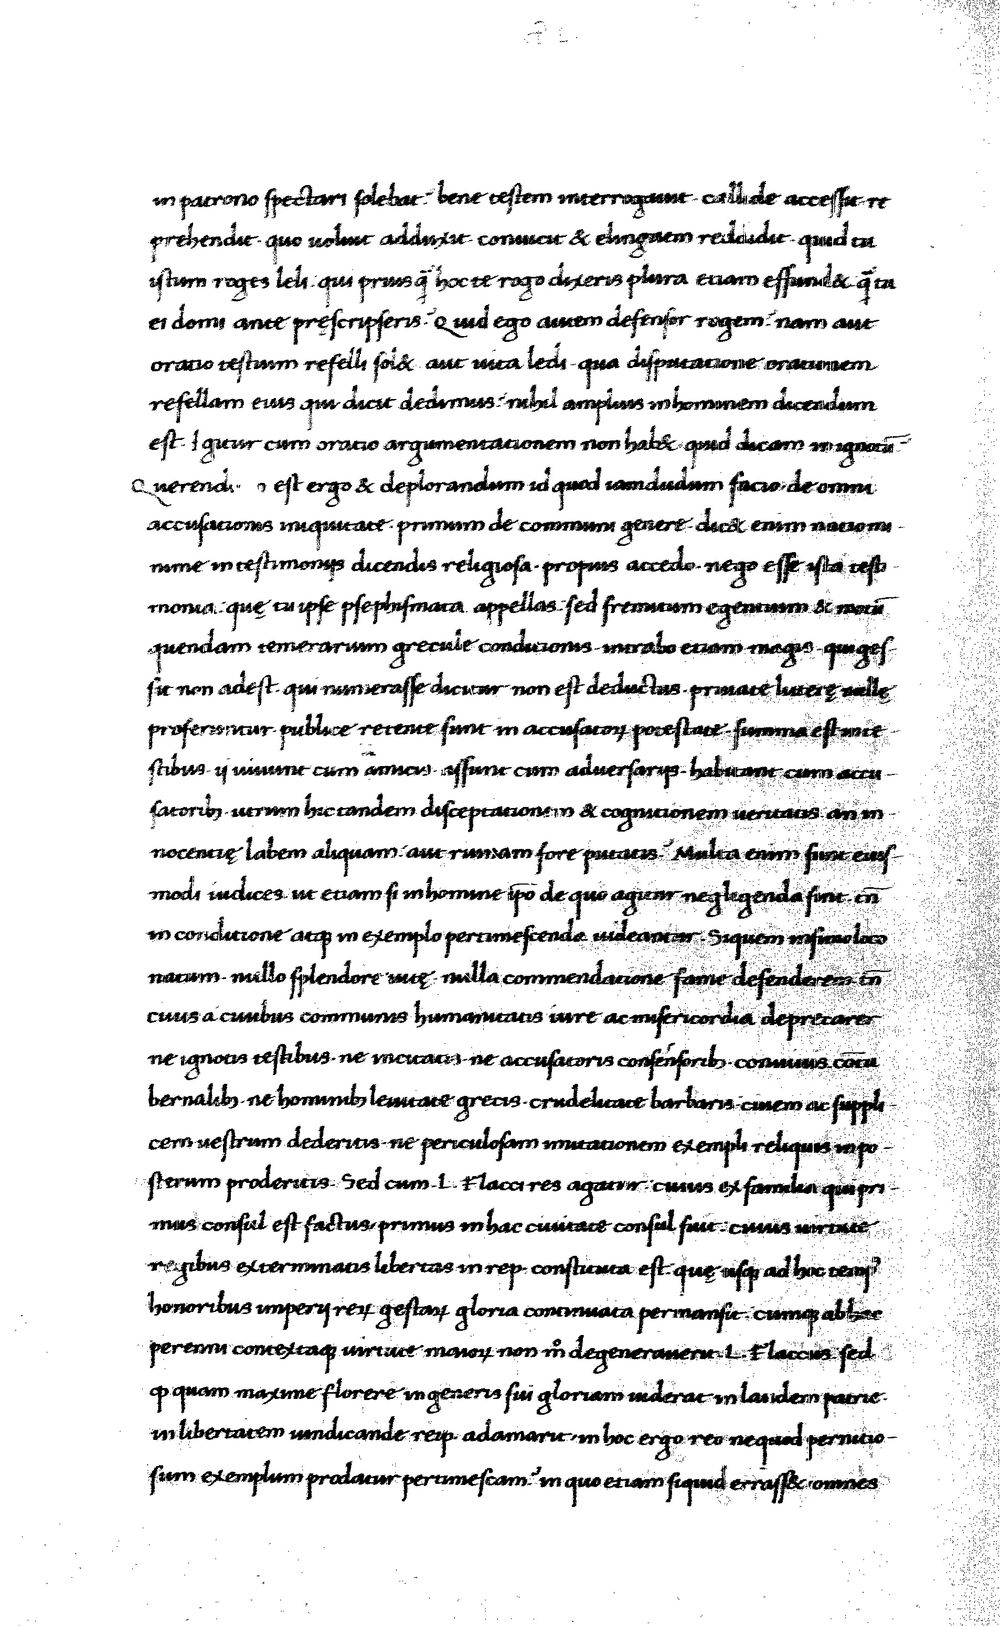 in patrono spectari solebat. bene testem interrogauit. callide accessit. re
prehendit. quo uoluit adduxit. conuicit & elinguem reddidit. quid tu
istum roges leli. qui prius q̄ hoc te rogo dixeris plura etiam effund&. q̄ tu
ei domi ante pręscripseris. Quid ego autem defensor rogem. nam aut
oratio testium refelli sol& aut uita ledi. qua disputatione orationem
refellam eius qui dicit dedimus. nihil amplius in hominem dicendum
est. Igitur cum oratio argumentationem non hab& quid dicam in ignotū
Querend est ergo & deplorandum id quod iamdudum facio. de omni
accusationis iniquitate. primum de communi genere. dic& enim nationi
nime in testimonijs dicendis religiosa. propius accedo. nego esse ista testi
monia. quę tu ipse psephismata appellas. sed fremitum egentium & motū
quendam temerarium grecule conditionis. intrabo etiam magis. qui ges
sit non adest. qui numerasse dicitur non est deductus. priuate litterę nullę
proferuntur. publice retente sunt in accusatoꝝ potestate. summa est in te
stibus. ij uiuunt cum amicis. assunt cum aduersarijs. habitant cum accu
satoribꝫ. utrum hic tandem disceptationem & cognitionem ueritatis. an in
nocentię labem aliquam. aut ruinam fore putatis. Multa enim sunt eius
modi iudices. ut etiam si in homine ip̄o de quo agitur neglegenda sint. tn̄
in conditione atqꝫ in exemplo pertimescenda uideantur. Si quem infimo loco
natum. nullo splendore uitę. nulla commendatione fame defenderem. tn̄
ciuis a ciuibus communis humanitatis iure ac misericordia deprecarer
ne ignotis testibus. ne incitatis. ne accusatoris consessoribꝫ. conuiuis cōtu
bernalibꝫ. ne hominibꝫ leuitate grecis. crudelitate barbaris. ciuem ac suppli
cem uestrum dederitis. ne periculosam imitationem exempli reliquis in po
sterum proderitis. Sed cum. L. Flacci res agatur. cuius ex familia qui pri
mus consul est factus, primus in hac ciuitate consul fuit. cuius uirtute
regibus exterminatis libertas in rep. constituta est. quę usqꝫ ad hoc temp⁹
honoribus imperij reꝝ gestaꝝ gloria continuata permansit. cumqꝫ ab hac
perenni contextaqꝫ uirtute maioꝝ non m̊ degenerauerit. L. Flaccus sed
ꝙ quam maxime florere in generis sui gloriam uiderat in laudem patrie.
in libertatem uindicande reip. adamarit. in hoc ergo reo nequod pernitio
sum exemplum prodatur pertimescam. in quo etiam siquid errass& omnes